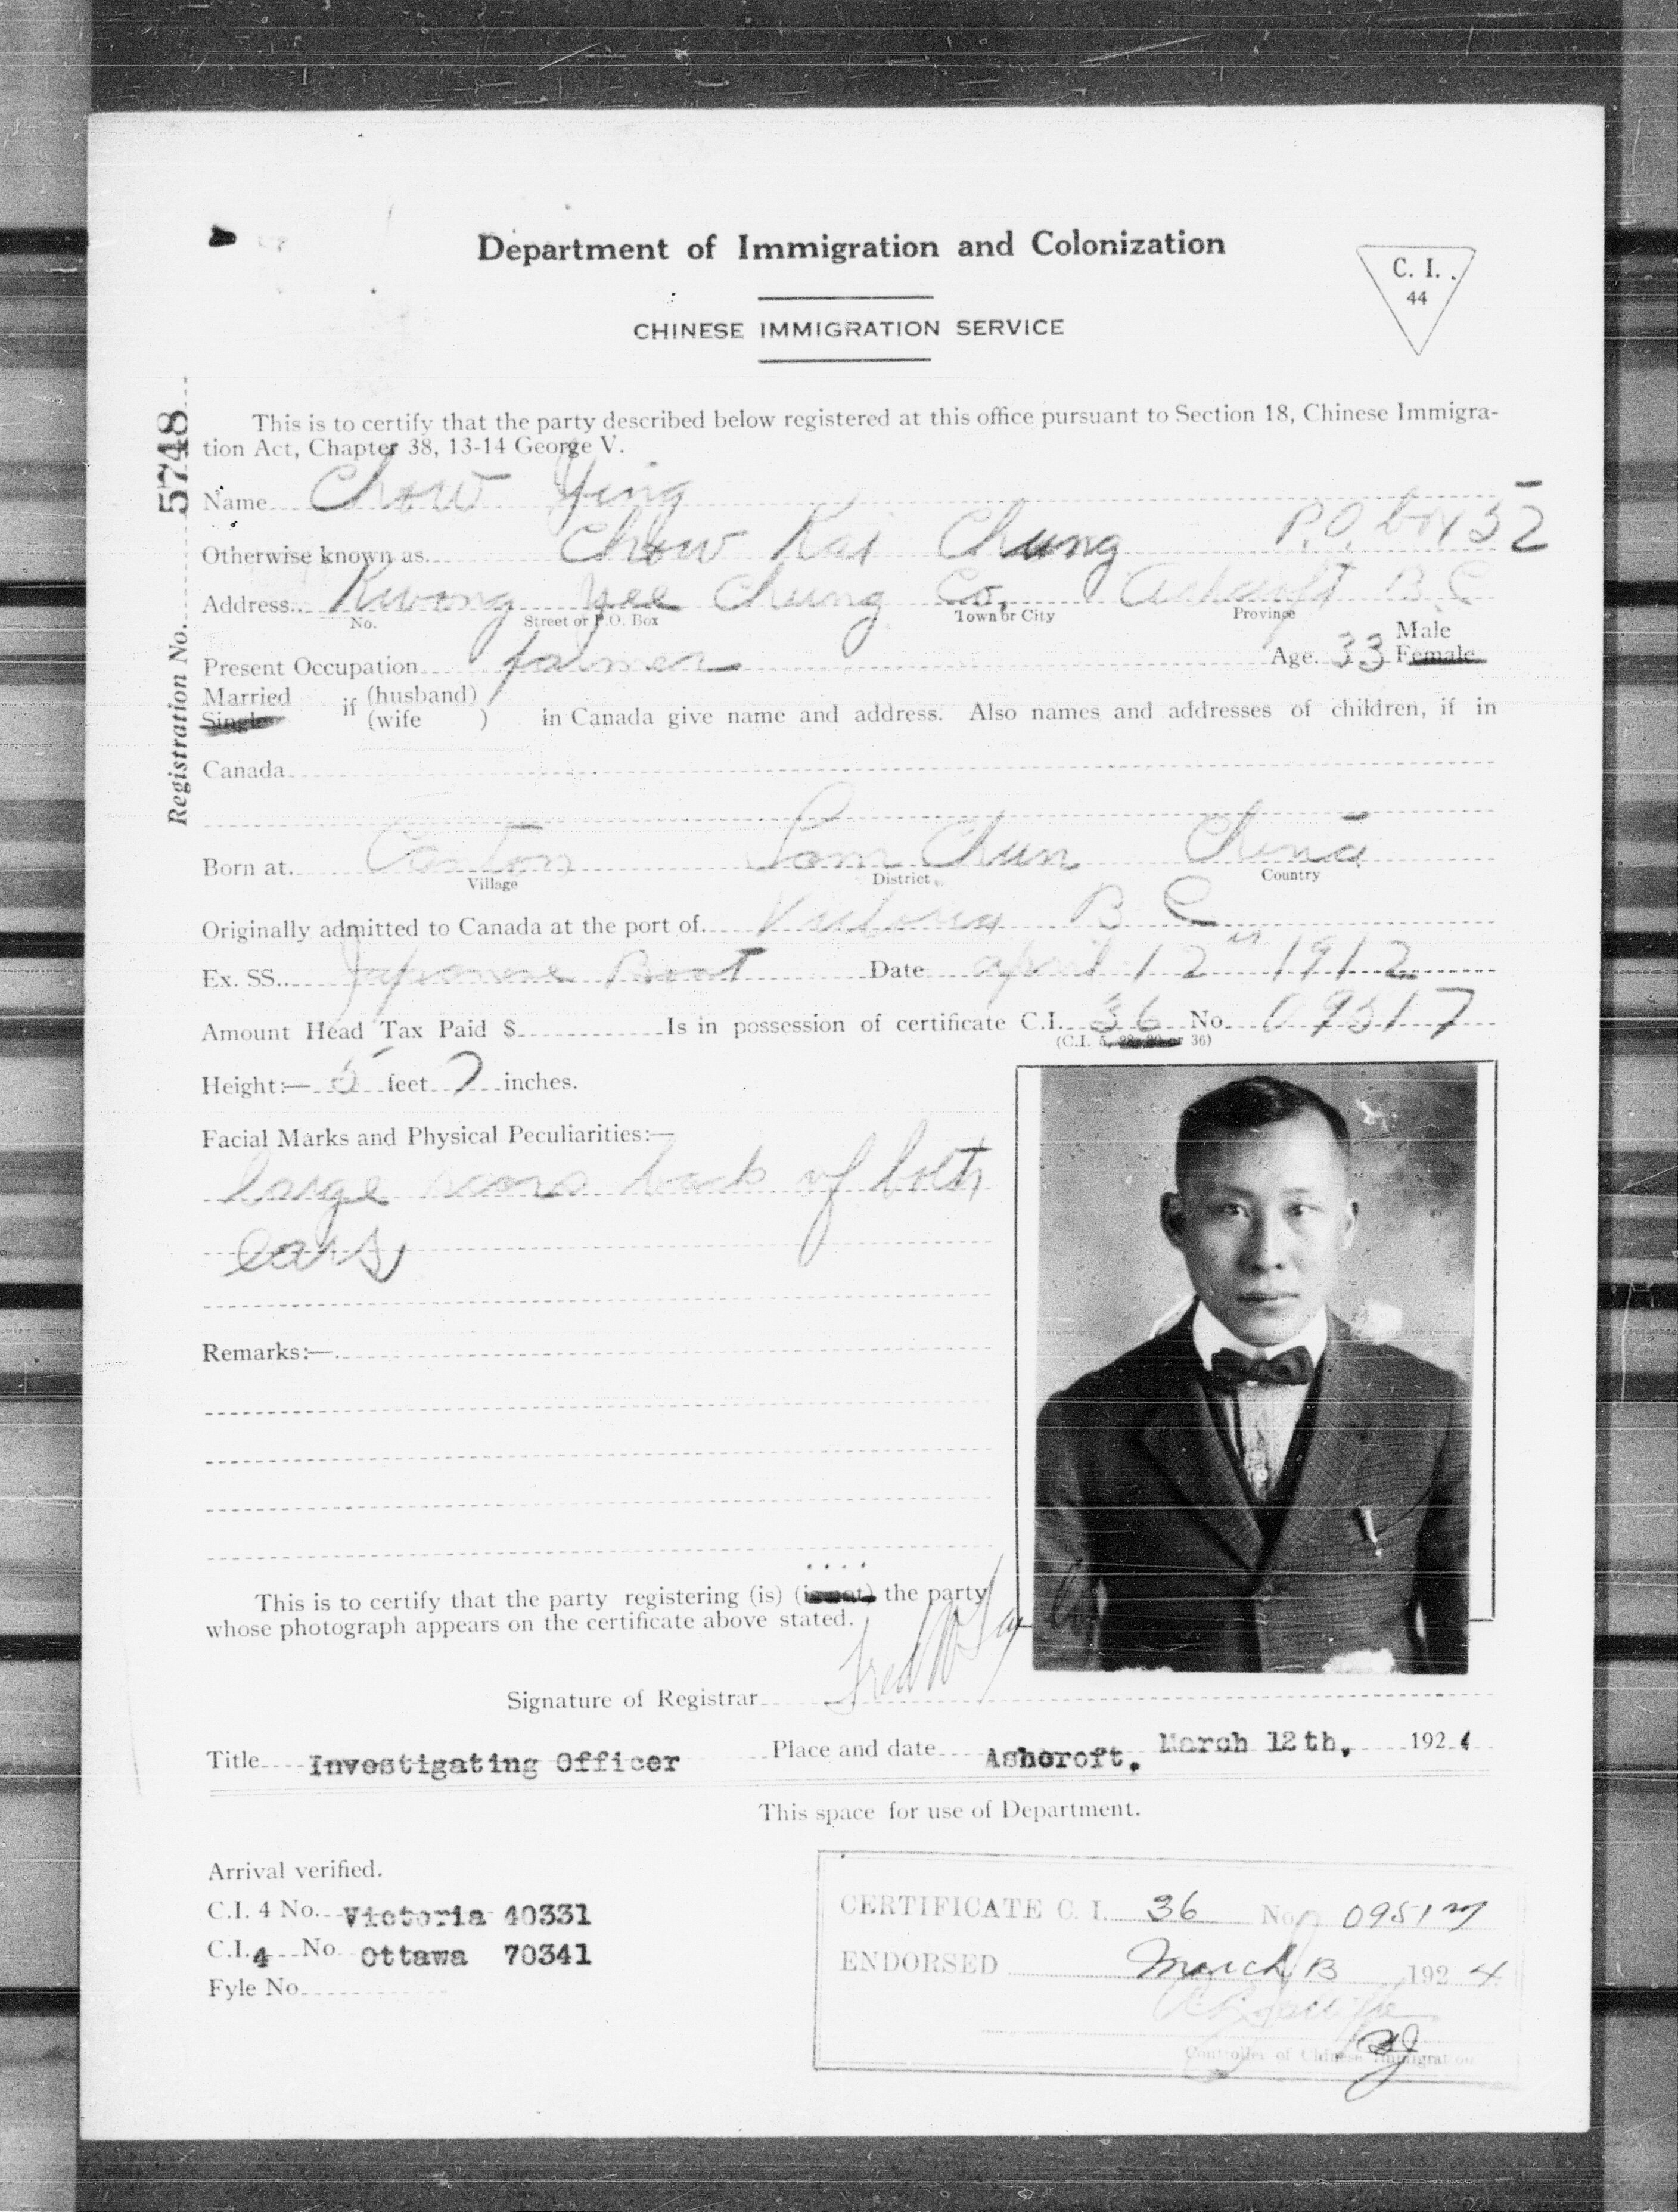 Department of Immigration and Colonization
C. I.
44
CHINESE IMMIGRATION SERVICE
Registration No. 5748
This is to certify that the party described below registered at this office pursuant to Section 18, Chinese Immigra-
tion Act, Chapter 38, 13-14 George V.
Name Chow Ying
Otherwise known as Chow Kai Chung P.O. box 52
Address Kwong Yee Chung Co, Ashcroft B.C
No. Street or P.O. Box Town or City Province
Present Occupation farmer Age. 33 Male Female
Married Single if (husband) (wife ) in Canada give name and address. Also names and addresses of children, if in
Canada
Born at Canton Sam Chun China
Village District Country
Originally admitted to Canada at the port of Victoria B C
Ex. SS. Japanese Boat Date april 12 1912
Amount Head Tax Paid $ Is in possession of certificate C.I. 36 No. 09517
(C.I. 5, 28, 30 or 36)
Height:— 5 feet 7 inches.
Facial Marks and Physical Peculiarities:—
large scars back of both
ears
Remarks:—
This is to certify that the party registering (is) (is not) the party
whose photograph appears on the certificate above stated.
Signature of Registrar Fred W
Title Investigating Officer Place and date Ashcroft, March 12th, 1924
This space for use of Department.
Arrival verified.
C.I. 4 No. Victoria 40331
C.I. 4 No Ottawa 70341
Fyle No.
CERTIFICATE C. I. 36 No. 09517
ENDORSED March 13 1924
Controller of Chinese Immigration